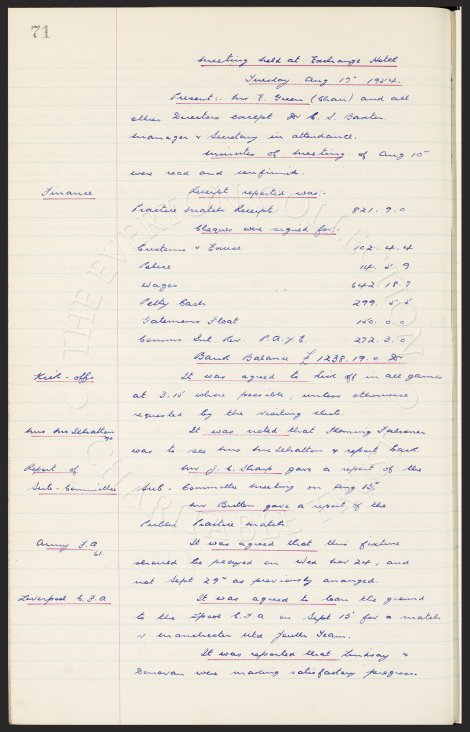 71
Meeting held at Exchange Hotel
Tuesday Aug 17 1954.
Present:- Mr E. Green (Chair) and all
other Directors except Dr C. S. Baxter.
Manager & Secretary in attendance.
Minutes of Meeting of Aug 10
were read and confirmed.
Finance
Receipt reported was:-
Practice Match Receipts 821. 9. 0
Cheques were signed for:-
Customs & Excise 102. 4. 4
Police 14. 5. 9
Wages 642. 18. 7
Petty Cash 299. 5. 5
Gatemens Float 150. 0. 0
Comms. Inl. Rev. P.A.Y.E. 272. 3. 0
Bank Balance £ 1238. 19. 0 Dr
Kick-offs
It was agreed to kick off in all games
at 3.15 where possible, unless otherwise
requested by the visiting club.
Mrs
It was noted that Fleming Falconer
was to see Mrs & report back.
Report of
Sub-Committee
Mr J. C. Sharp gave a report of the
Sub-Committee meeting on Aug 13.
Mr Britten gave a report of the
Public Practice Match.
Army F.A
It was agreed that this fixture
should be played on Wed Nov 24, and
not Sept 29 as previously arranged.
Liverpool C.F.A
It was agreed to loan the ground
to the Lpool C.F.A on Sept 13 for a match
v Manchester Utd Youth Team.
It was reported that Lindsay &
Donovan were making satisfactory progress.
THE EVERTON COLLECTION
CHARITABLE TRUST